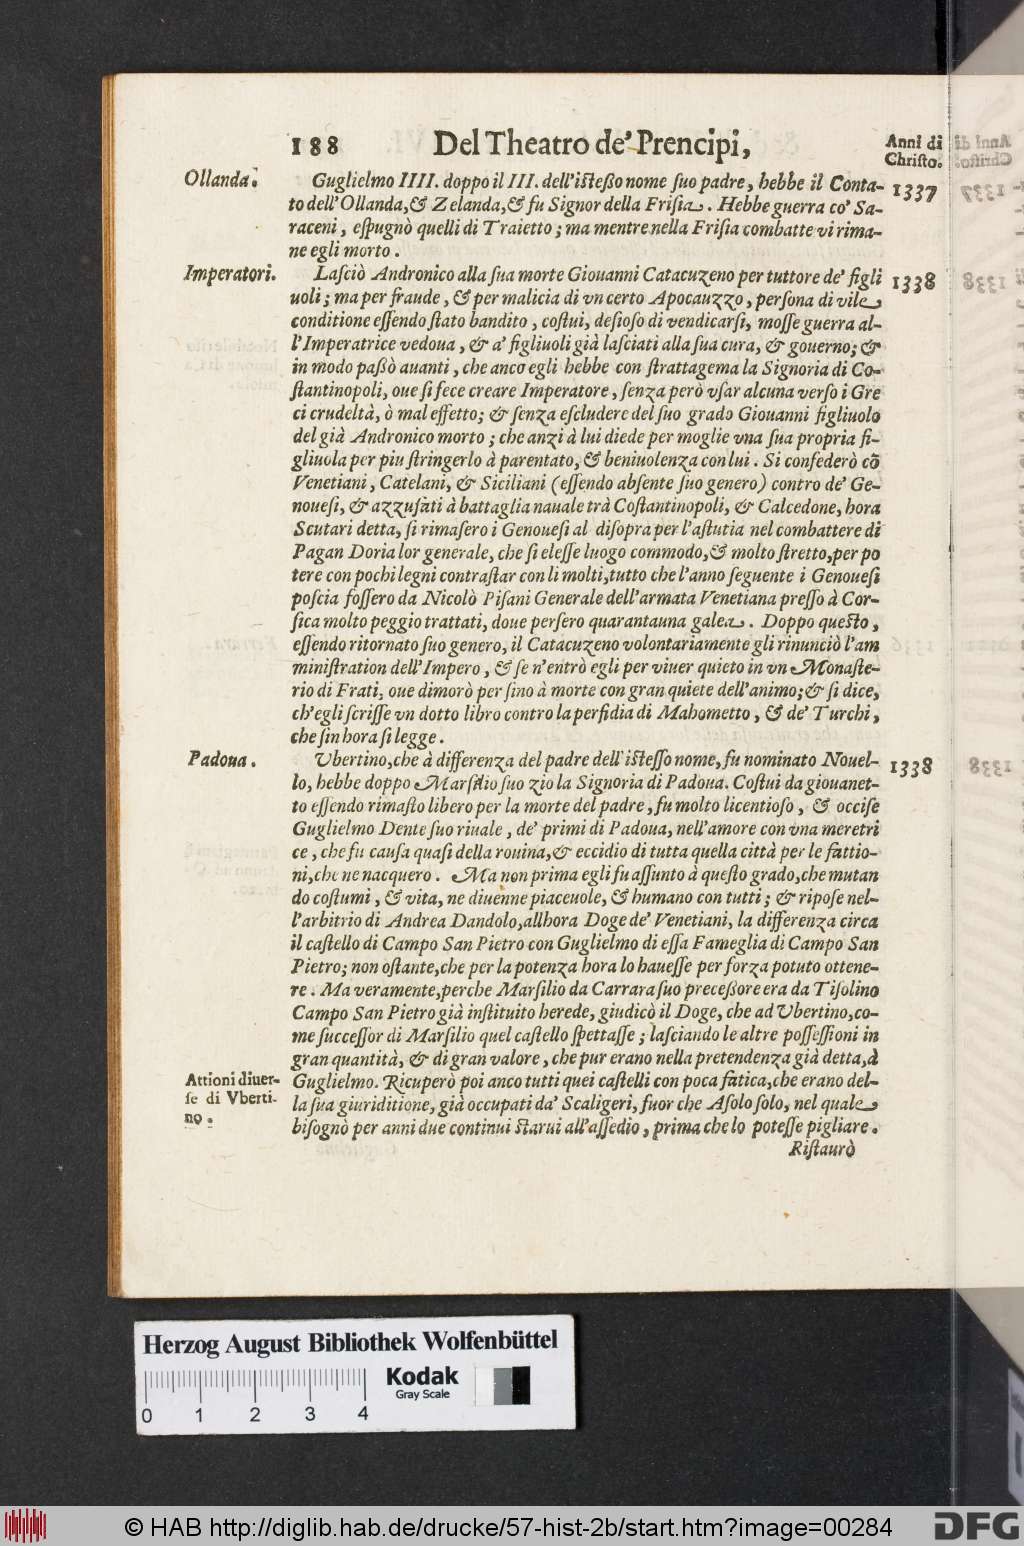 188 Del Theatro de' Prencipi, Anni di
Christo.
Ollanda. Guglielmo IIII. doppo il III. dell'istesso nome suo padre, hebbe il Conta- 1337
to dell'Ollanda, & Zelanda, & fu Signor della Frisia. Hebbe guerra co' Sa-
raceni, espugnò quelli di Traietto; ma mentre nella Frisia combatte vi rima-
ne egli morto.
Imperatori. Lasciò Andronico alla sua morte Giouanni Catacuzeno per tuttore de' figli 1338
uoli; ma per fraude, & per malicia di vn certo Apocauzzo, persona di vile
conditione essendo stato bandito, costui, desioso di vendicarsi, mosse guerra al-
l'Imperatrice vedoua, & a' figliuoli già lasciati alla sua cura, & gouerno; &
in modo passò auanti, che anco egli hebbe con strattagema la Signoria di Co-
stantinopoli, oue si fece creare Imperatore, senza però vsar alcuna verso i Gre
ci crudeltà, ò mal effetto; & senza escludere del suo grado Giouanni figliuolo
del già Andronico morto; che anzi à lui diede per moglie vna sua propria fi-
gliuola per piu stringerlo à parentato, & beniuolenza con lui. Si confederò cō
Venetiani, Catelani, & Siciliani (essendo absente suo genero) contro de' Ge-
nouesi, & azzufati à battaglia nauale trà Costantinopoli, & Calcedone, hora
Scutari detta, si rimasero i Genouesi al disopra per l'astutia nel combattere di
Pagan Doria lor generale, che si elesse luogo commodo, & molto stretto, per po
tere con pochi legni contrastar con li molti, tutto che l'anno seguente i Genouesi
poscia fossero da Nicolò Pisani Generale dell'armata Venetiana presso à Cor-
sica molto peggio trattati, doue persero quarantauna galea. Doppo questo,
essendo ritornato suo genero, il Catacuzeno volontariamente gli rinunciò l'am
ministration dell'Impero, & se n'entrò egli per viuer quieto in vn Monaste-
rio di Frati, oue dimorò per sino à morte con gran quiete dell'animo; & si dice,
ch'egli scrisse vn dotto libro contro la perfidia di Mahometto, & de' Turchi,
che sin hora si legge.
Padoua. Vbertino, che à differenza del padre dell'istesso nome, fu nominato Nouel- 1338
lo, hebbe doppo Marsilio suo zio la Signoria di Padoua. Costui da giouanet-
to essendo rimasto libero per la morte del padre, fu molto licentioso, & occise
Guglielmo Dente suo riuale, de' primi di Padoua, nell'amore con vna meretri
ce, che fu causa quasi della rouina, & eccidio di tutta quella città per le fattio-
ni, che ne nacquero. Ma non prima egli fu assunto à questo grado, che mutan
do costumi, & vita, ne diuenne piaceuole, & humano con tutti; & ripose nel-
l'arbitrio di Andrea Dandolo, allhora Doge de' Venetiani, la differenza circa
il castello di Campo San Pietro con Guglielmo di essa Fameglia di Campo San
Pietro; non ostante, che per la potenza hora lo hauesse per forza potuto ottene-
re. Ma veramente, perche Marsilio da Carrara suo precessore era da Tisolino
Campo San Pietro già instituito herede, giudicò il Doge, che ad Vbertino, co-
me successor di Marsilio quel castello spettasse; lasciando le altre possessioni in
gran quantità, & di gran valore, che pur erano nella pretendenza già detta, à
Attioni diuer- Guglielmo. Ricuperò poi anco tutti quei castelli con poca fatica, che erano del-
se di Vberti- la sua giuriditione, già occupati da' Scaligeri, fuor che Asolo solo, nel quale
no. bisognò per anni due continui starui all'assedio, prima che lo potesse pigliare.
Ristaurò
Herzog August Bibliothek Wolfenbüttel
Kodak
Gray Scale
0 1 2 3 4
© HAB http://diglib.hab.de/drucke/57-hist-2b/start.htm?image=00284
DFG